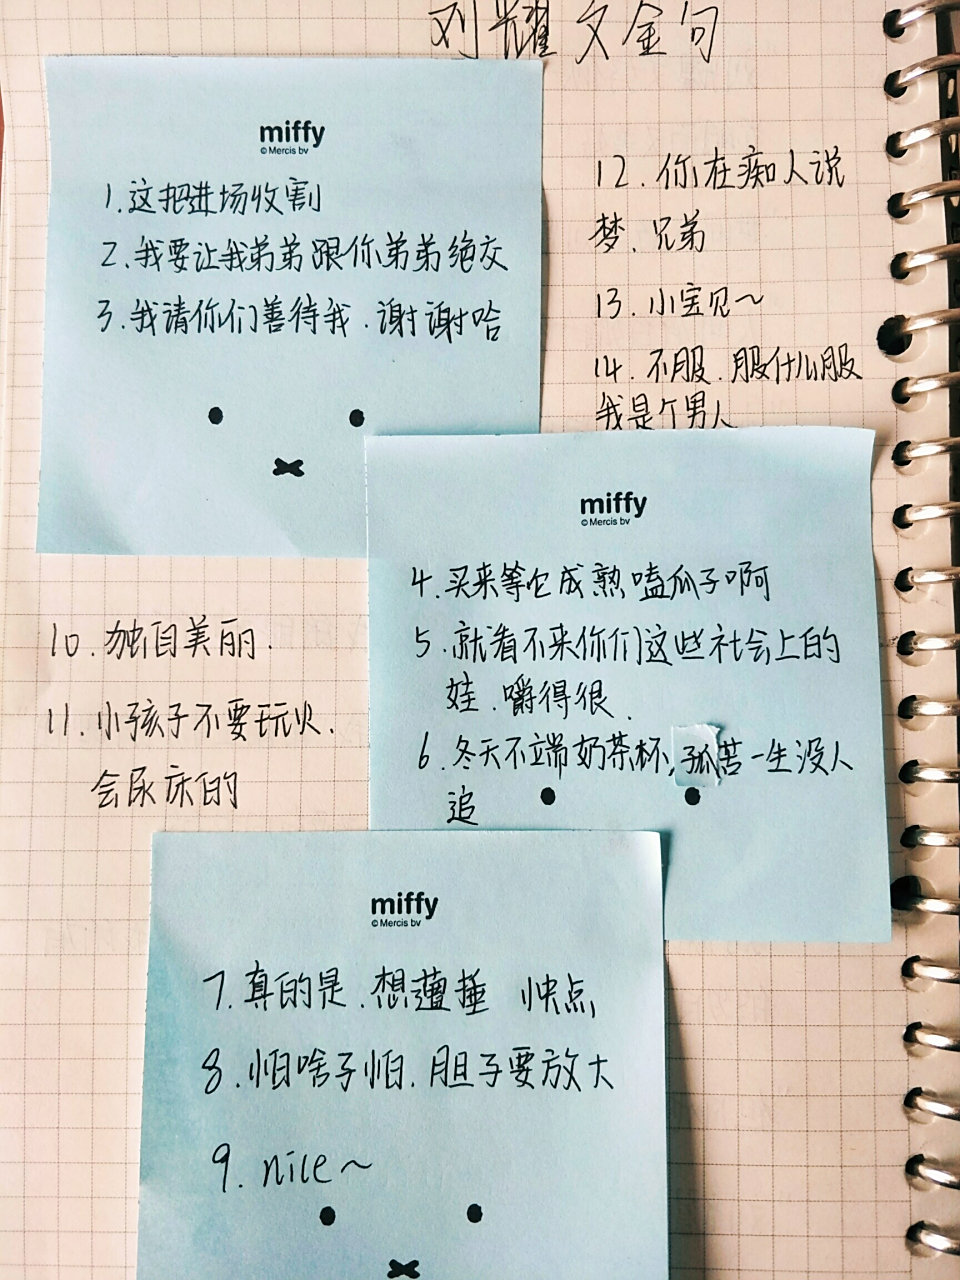 刘耀文金句
miffy
© Mercis bv
1.这把进场收割
2.我要让我弟弟跟你弟弟绝交
3.我请你们善待我.谢谢哈
12.你在痴人说
梦.兄弟
13.小宝贝~
14.不服.服什么服
我是个男人
miffy
© Mercis bv
4.买来等它成熟嗑瓜子啊
5.就看不来你们这些社会上的
娃.嚼得很.
6.冬天不端奶茶杯,孤苦一生没人
追
10.独自美丽.
11.小孩子不要玩火.
会尿床的
miffy
© Mercis bv
7.真的是.想遭捶 快点
8.怕啥子怕.胆子要放大
9.nice~